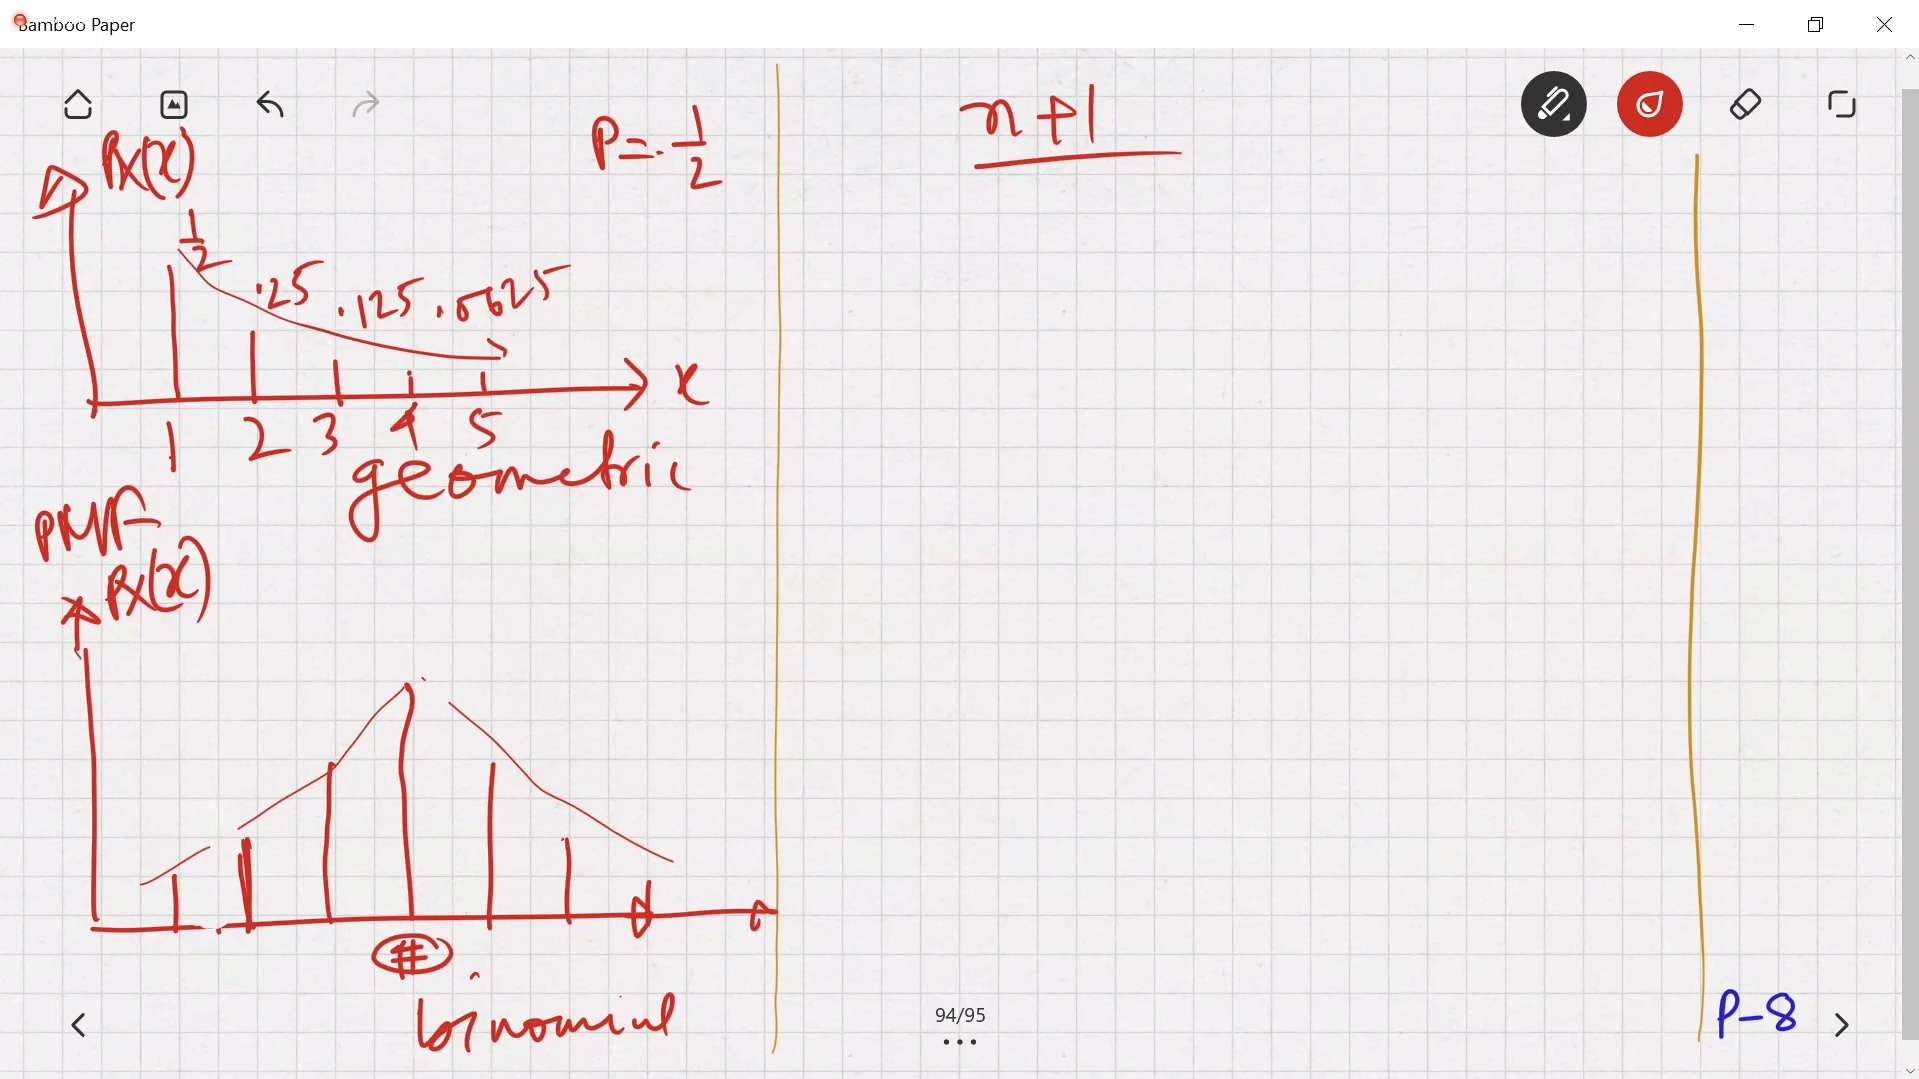 Bamboo Paper
Px(x)
P = 1/2
n+1
1/2
.25 .125 .0625
x
1 2 3 4 5
geometric
PMF
Px(x)
#
binomial
94/95
P-8